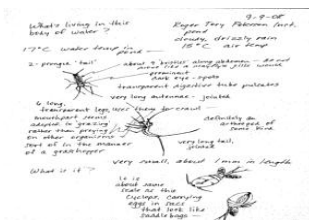 9-9-08
What's living in this
body of water?
Roger Tory Peterson Inst.
pond
cloudy, drizzly rain
17°C water temp in
pond
15°C air temp
2-pronged 'tail'
about 9 bristles along abdomen - do not
move like a mayfly's gills would
prominent
dark eye-spots
transparent digestive tube pulsates
very long antennae - jointed
6 long,
transparent legs, uses them to crawl
mouthpart seems
adapted to 'grazing'
rather than preying
on other organisms -
sort of in the manner
of a grasshopper
definitely an
arthropod of
some kind
very long tail,
jointed
very small, about 1 mm in length
What is it?
It is
about same
scale as this
Cyclops, carrying
eggs in sacs
that look like
saddlebags -